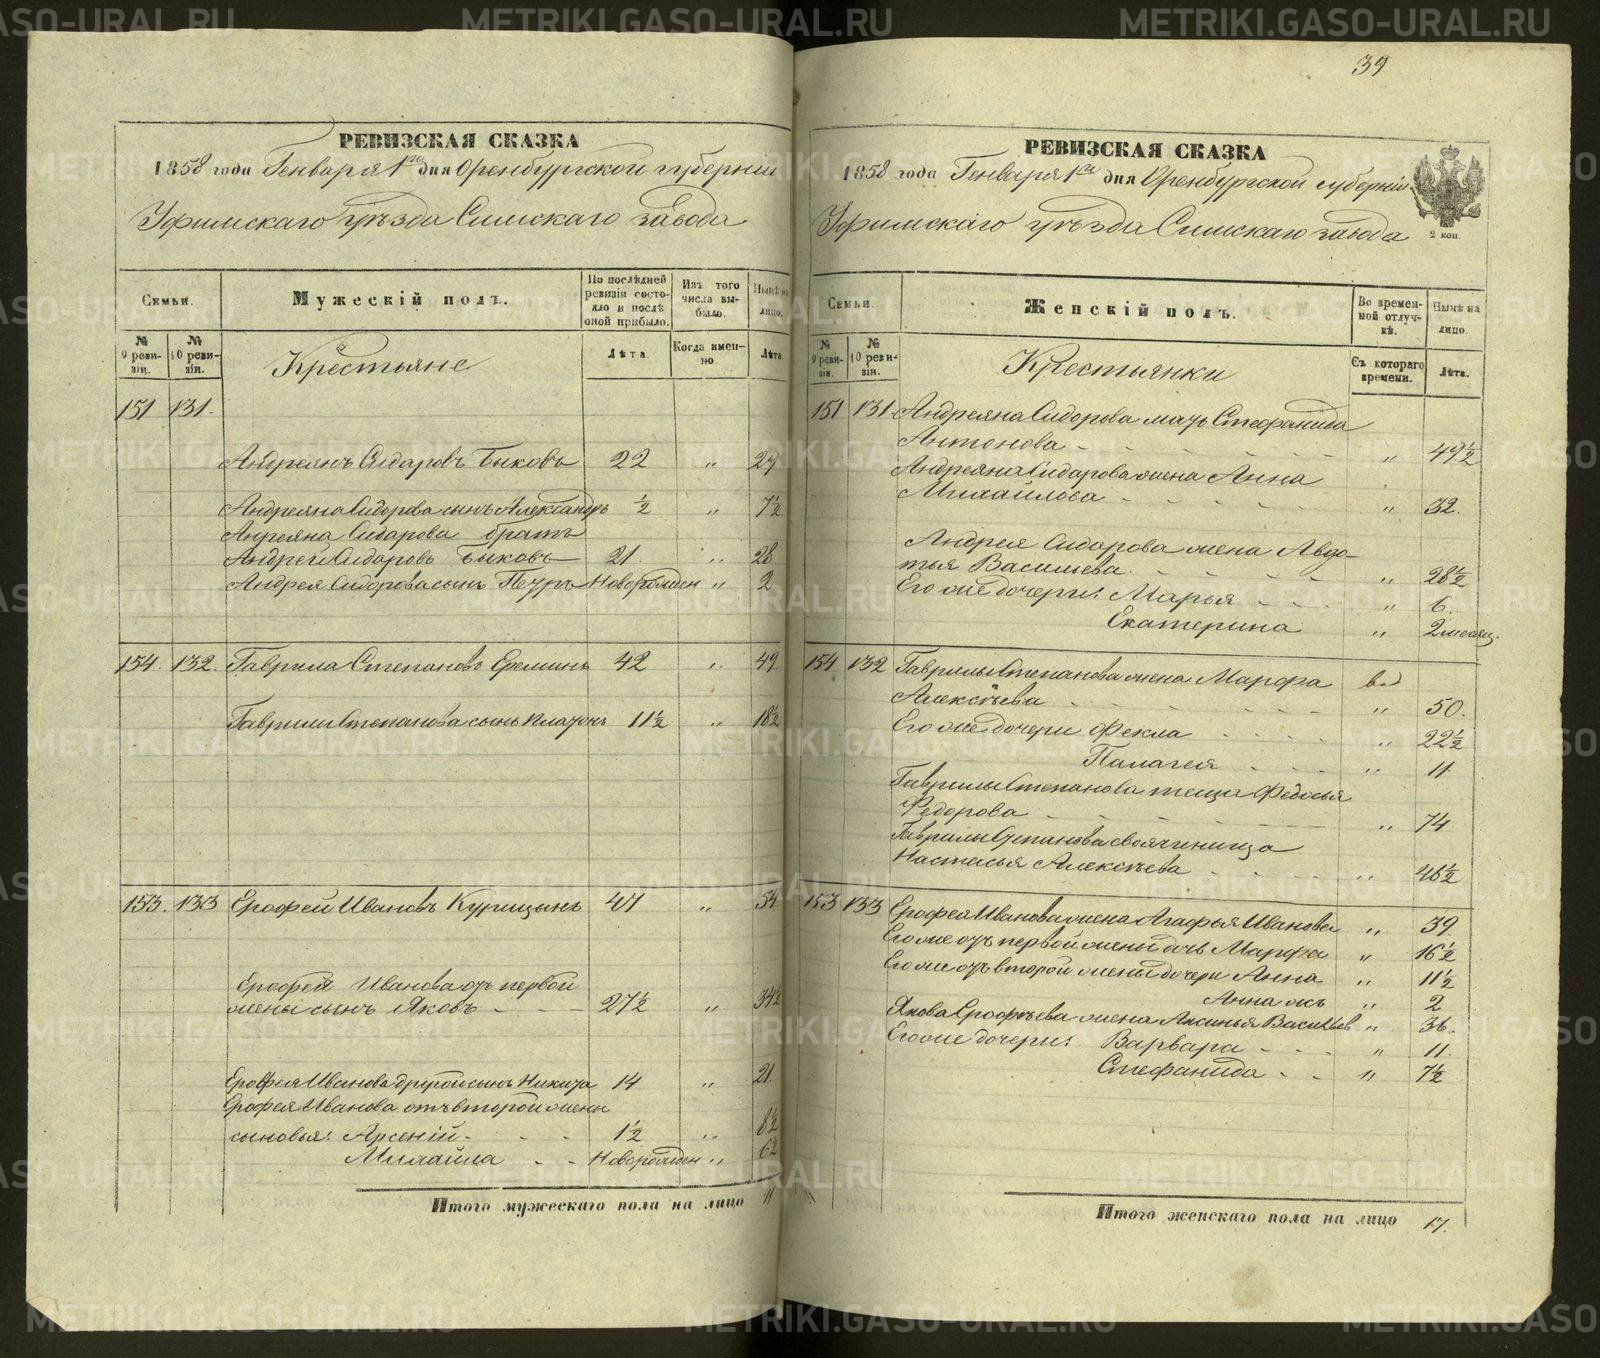 39
РЕВИЗСКАЯ СКАЗКА
1858 года Генваря 1го дня Оренбургской губерніи
Уфимскаго уѣзда Симскаго завода
Семьи.
Мужескій полъ.
По послѣдней ревизіи состояло и послѣ оной прибыло.
Изъ того числа выбыло.
Нынѣ на лицо.
№ 9 ревизіи.
№ 10 ревизіи.
Крестьяне
Лѣта.
Когда именно
Лѣта
151 131.
Андреянъ Сидаровъ Быковъ 22 „ 29
Андреяна Сидорова сынъ Александръ ½ „ 7½
Андреяна Сидарова братъ
Андрей Сидаровъ Быковъ 21 „ 28
Андрея Сидорова сынъ Петръ Новорожден „ 2
154. 132. Гаврила Степановъ Ереминъ 42 „ 49
Гаврилы Степанова сынъ Платонъ 11½ „ 18½
153. 133 Ерофей Ивановъ Курицынъ 47 „ 54
Ерофея Иванова отъ первой
жены сынъ Яковъ 27½ „ 34½
Ерофея Иванова другой сынъ Никита 14 „ 21
Ерофея Иванова отъ второй жены
сыновья: Арсеній 1½ „ 8½
Михайла Новорожден „ 6½
Итого мужескаго пола на лицо 11
РЕВИЗСКАЯ СКАЗКА
1858 года Генваря 1го дня Оренбургской губерніи
Уфимскаго уѣзда Симскаго завода
2 коп.
Семьи.
Женскій полъ.
Во временной отлучкѣ.
Нынѣ на лицо.
№ 9 ревизіи.
№ 10 ревизіи.
Крестьянки
Съ котораго времени.
Лѣта.
151 131 Андреяна Сидорова мать Стефанида
Антонова „ 49½
Андреяна Сидарова жена Анна
Михайлова „ 32.
Андрея Сидарова жена Авдо
тья Васильева „ 28½
Его же дочери: Марья „ 6.
Екатерина „ 2 месяц.
154 132 Гаврилы Степанова жена Марфа
Алексѣева „ 50.
Его же дочери Фекла „ 22½
Палагея „ 11
Гаврилы Степанова теща Федосья
Федорова „ 74
Гаврилы Степанова своячиница
Настасья Алексѣева „ 46½
153 133 Ерофея Иванова жена Агафья Иванова „ 39
Его же отъ первой жены дочь Марфа „ 16½
Его же отъ второй жены дочери Анна „ 11½
Анна жъ „ 2
Якова Ерофѣева жена Аксинья Васильев „ 36.
Его же дочери: Варвара „ 11.
Стефанида „ 7½
Итого женскаго пола на лицо 17.
METRIKI.GASO-URAL.RU